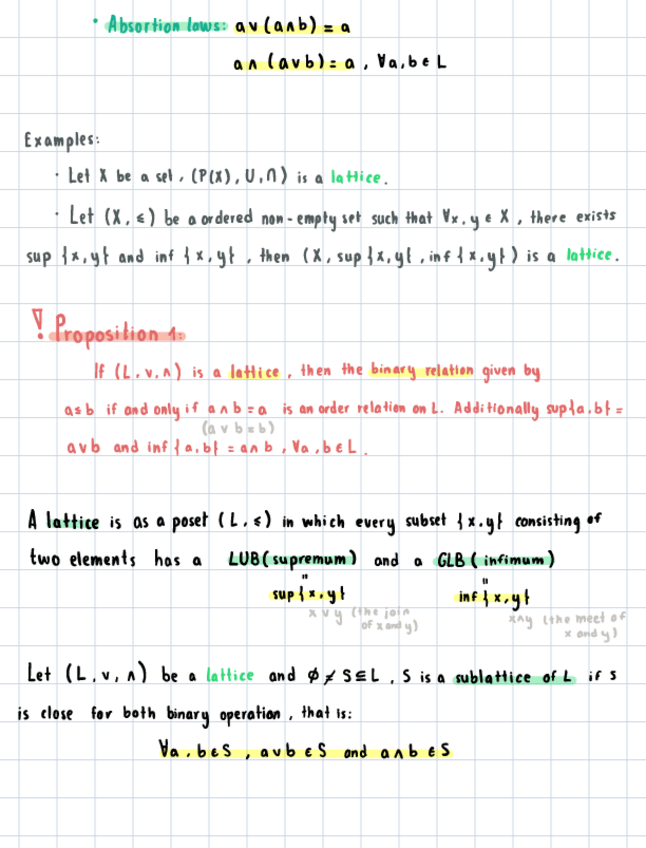 · Absortion laws: a∨(a∧b) = a
a∧(a∨b) = a , ∀a,b ∈ L
Examples:
· Let X be a set , (P(X), U, ∩) is a lattice.
· Let (X, ≤) be a ordered non-empty set such that ∀x, y ∈ X , there exists
sup {x,y} and inf {x,y} , then (X, sup{x,y} , inf {x,y}) is a lattice.
! Proposition 1:
If (L, ∨, ∧) is a lattice , then the binary relation given by
a≤b if and only if a∧b = a is an order relation on L. Additionally sup{a,b} =
(a∨b=b)
a∨b and inf {a,b} = a∧b , ∀a,b ∈ L.
A lattice is as a poset (L, ≤) in which every subset {x,y} consisting of
two elements has a LUB (supremum) and a GLB (infimum)
" "
sup{x,y} inf {x,y}
x∨y (the join of x and y) x∧y (the meet of x and y)
Let (L, ∨, ∧) be a lattice and ∅ ≠ S ⊆ L , S is a sublattice of L if S
is close for both binary operation , that is:
∀a, b ∈ S , a∨b ∈ S and a∧b ∈ S